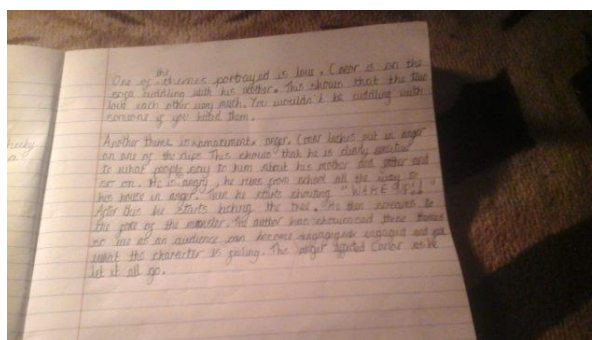 the
One of themes portrayed is love. Conor is on the
sofa cuddling with his mother. This shows that the two
love each other very much. You wouldn't be cuddling with
someone if you hated them.
Another theme is anger. Conor lashes out in anger
on one of the This shows that he is sensitive
to what people say to him about his mother and father and
so on. He is angry, he runs from school all the way to
his house in anger. Then he starts shouting "WAKE UP!"
After this he starts kicking the tree. He then
the of the monster. The author has showcased these themes
so we as an audience can become engaged and
what the character is feeling. The anger Conor so he
let it all go.